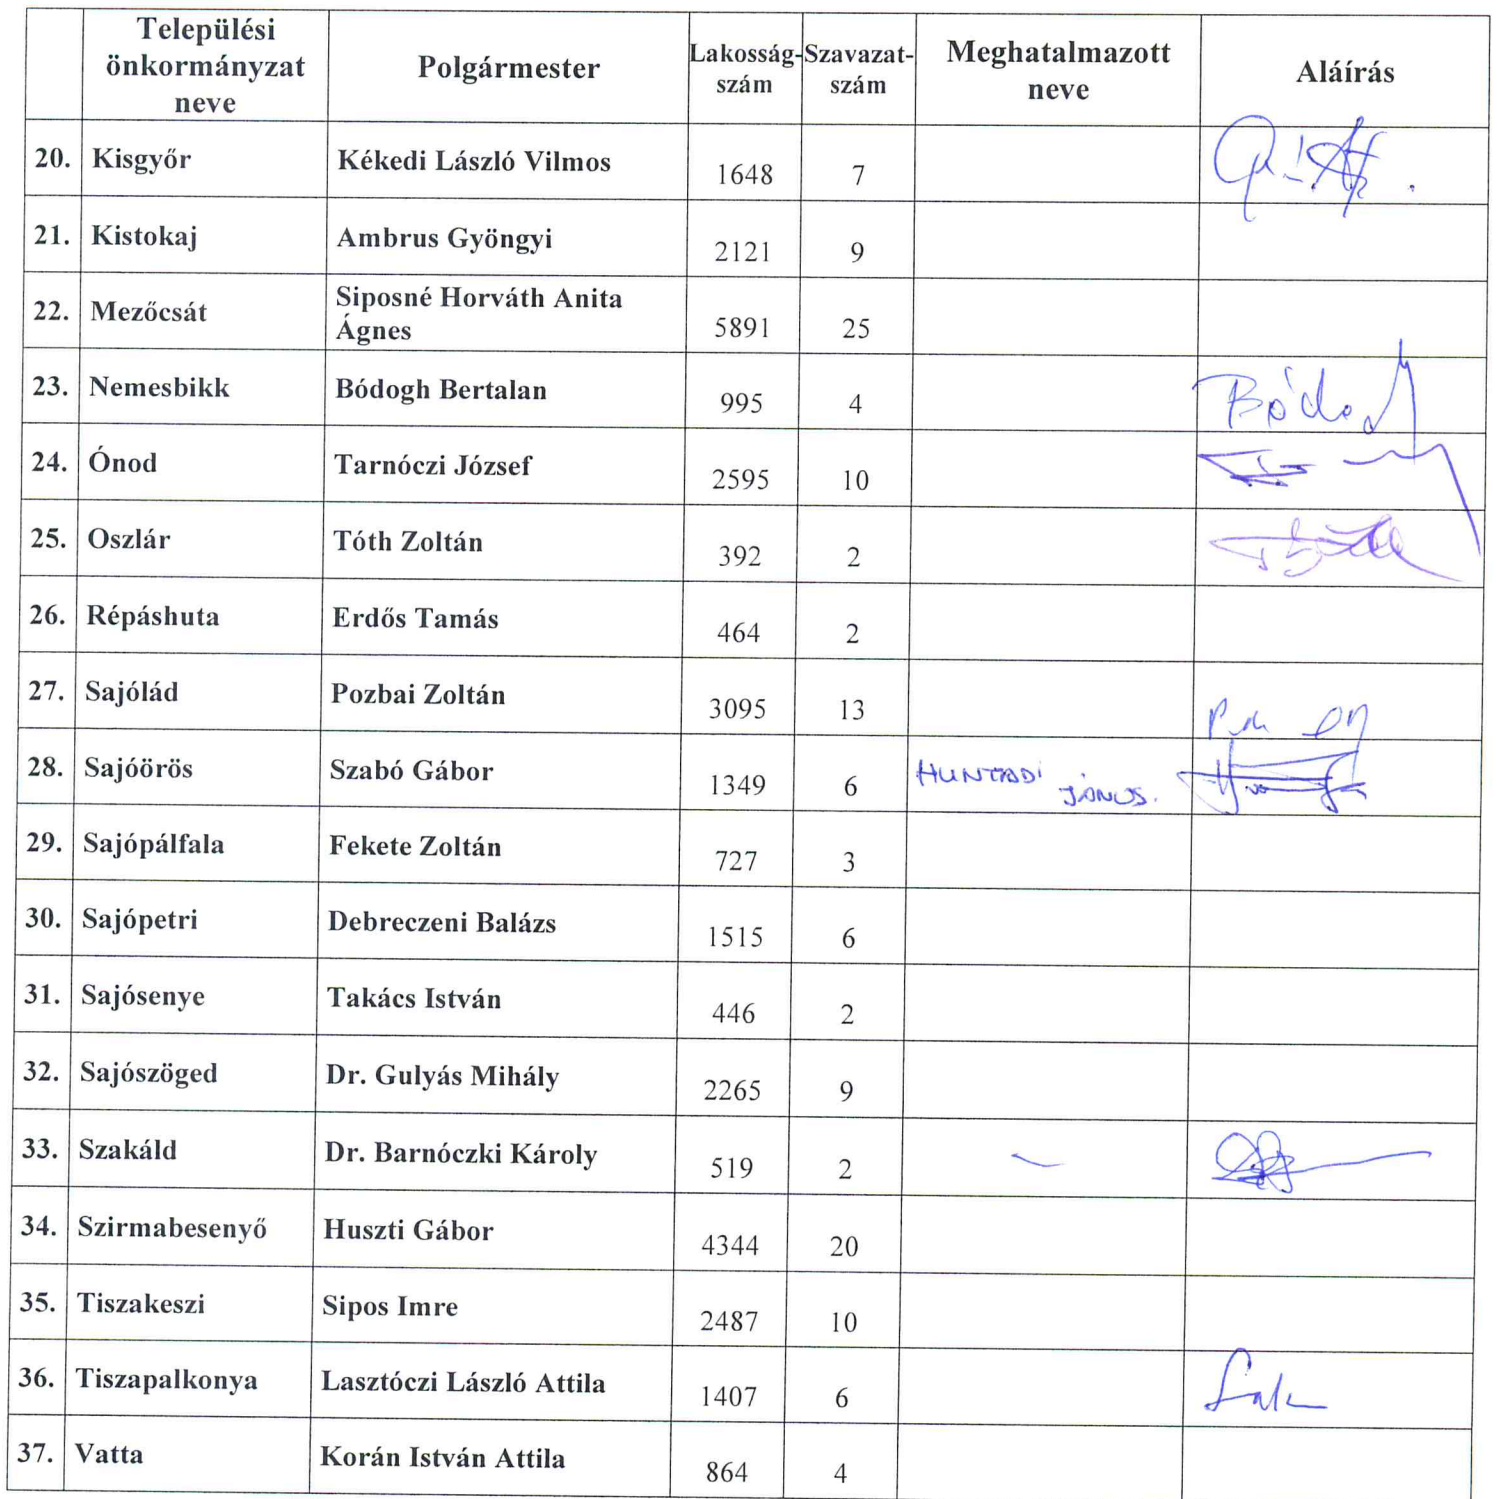 Települési önkormányzat neve Polgármester Lakosság-szám Szavazat-szám Meghatalmazott neve Aláírás
20. Kisgyőr Kékedi László Vilmos 1648 7
21. Kistokaj Ambrus Gyöngyi 2121 9
22. Mezőcsát Siposné Horváth Anita Ágnes 5891 25
23. Nemesbikk Bódogh Bertalan 995 4
24. Ónod Tarnóczi József 2595 10
25. Oszlár Tóth Zoltán 392 2
26. Répáshuta Erdős Tamás 464 2
27. Sajólád Pozbai Zoltán 3095 13
28. Sajóörös Szabó Gábor 1349 6 HUNYADI JÁNOS.
29. Sajópálfala Fekete Zoltán 727 3
30. Sajópetri Debreczeni Balázs 1515 6
31. Sajósenye Takács István 446 2
32. Sajószöged Dr. Gulyás Mihály 2265 9
33. Szakáld Dr. Barnóczki Károly 519 2
34. Szirmabesenyő Huszti Gábor 4344 20
35. Tiszakeszi Sipos Imre 2487 10
36. Tiszapalkonya Lasztóczi László Attila 1407 6
37. Vatta Korán István Attila 864 4